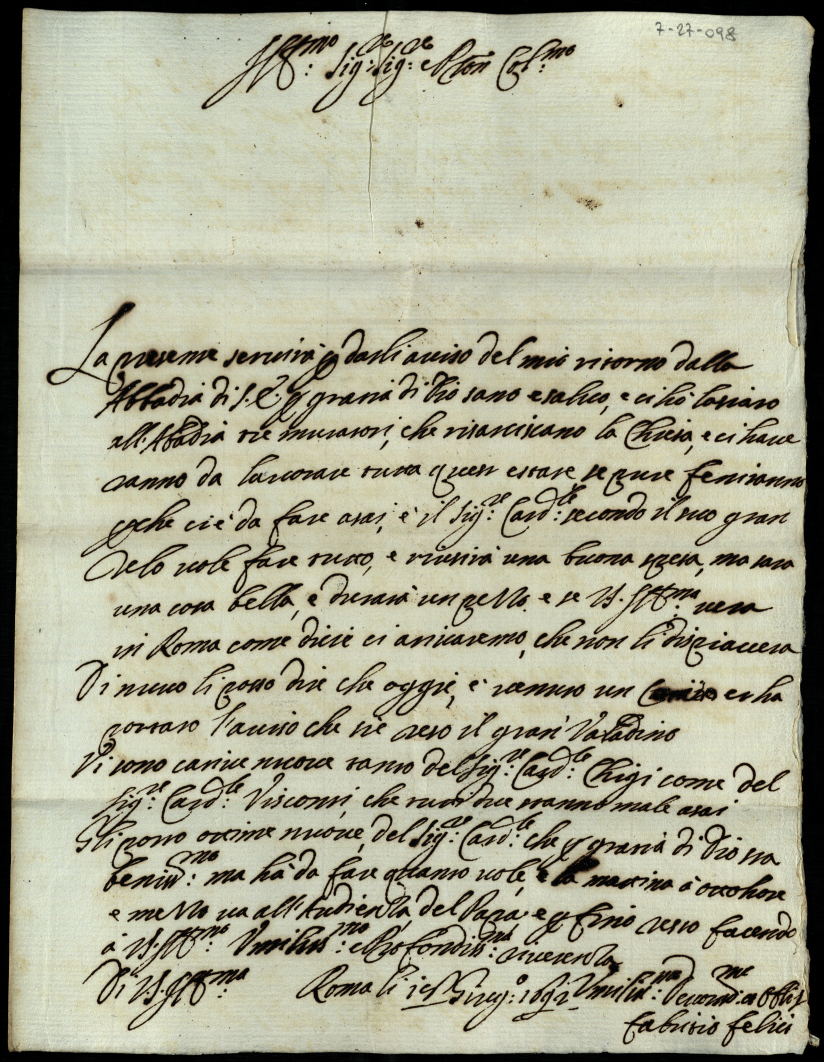 7-27-098
Ill.mo Sig.re Sig.re e Pron Col.mo
La presente servirà p darli aviso del mio ritorno dalla
Abbadia di S. E. p gratia di Dio sano e salvo, e ci hò lasciato
all'Abadia tre muratori, che risarciscano la Chiesa, e ci have
ranno da lavorare tutta quest estate, se pure feniranno
pche ci è da fare asai, è il Sig.re Card.le secondo il suo gran
zelo vole fare tutto, e riuscirà una buona spesa, ma sara
una cosa bella, e durarà un pezzo, e se VS. Ill.ma vera
in Roma come dice ci anivaremo, che non li dispiacera
Di nuovo li posso dire che oggie, è venuto un ci ha
portato l'aviso che sie reso il gran Valadino
Vi sono cative nuove tanto del Sig.re Card.le Chigi come del
Sig.re Card.le Visconti, che tutti due stanno male asai
Gli porto ottime nuove, del Sig.re Card.le che p gratia di Dio sta
beniss.mo ma hà da fare quanto vole, e la mattina à ott'hore
e mezzo va all'Audienza, del Papa e p fine resto facendo
à VS. Ill.mo Umiliss.mo e Profondiss.ma riverenza
Di VS. Ill.ma Roma li Giug.o 1692 Umiliss.mo Devotiss.mo oblig
Fabritio Felici